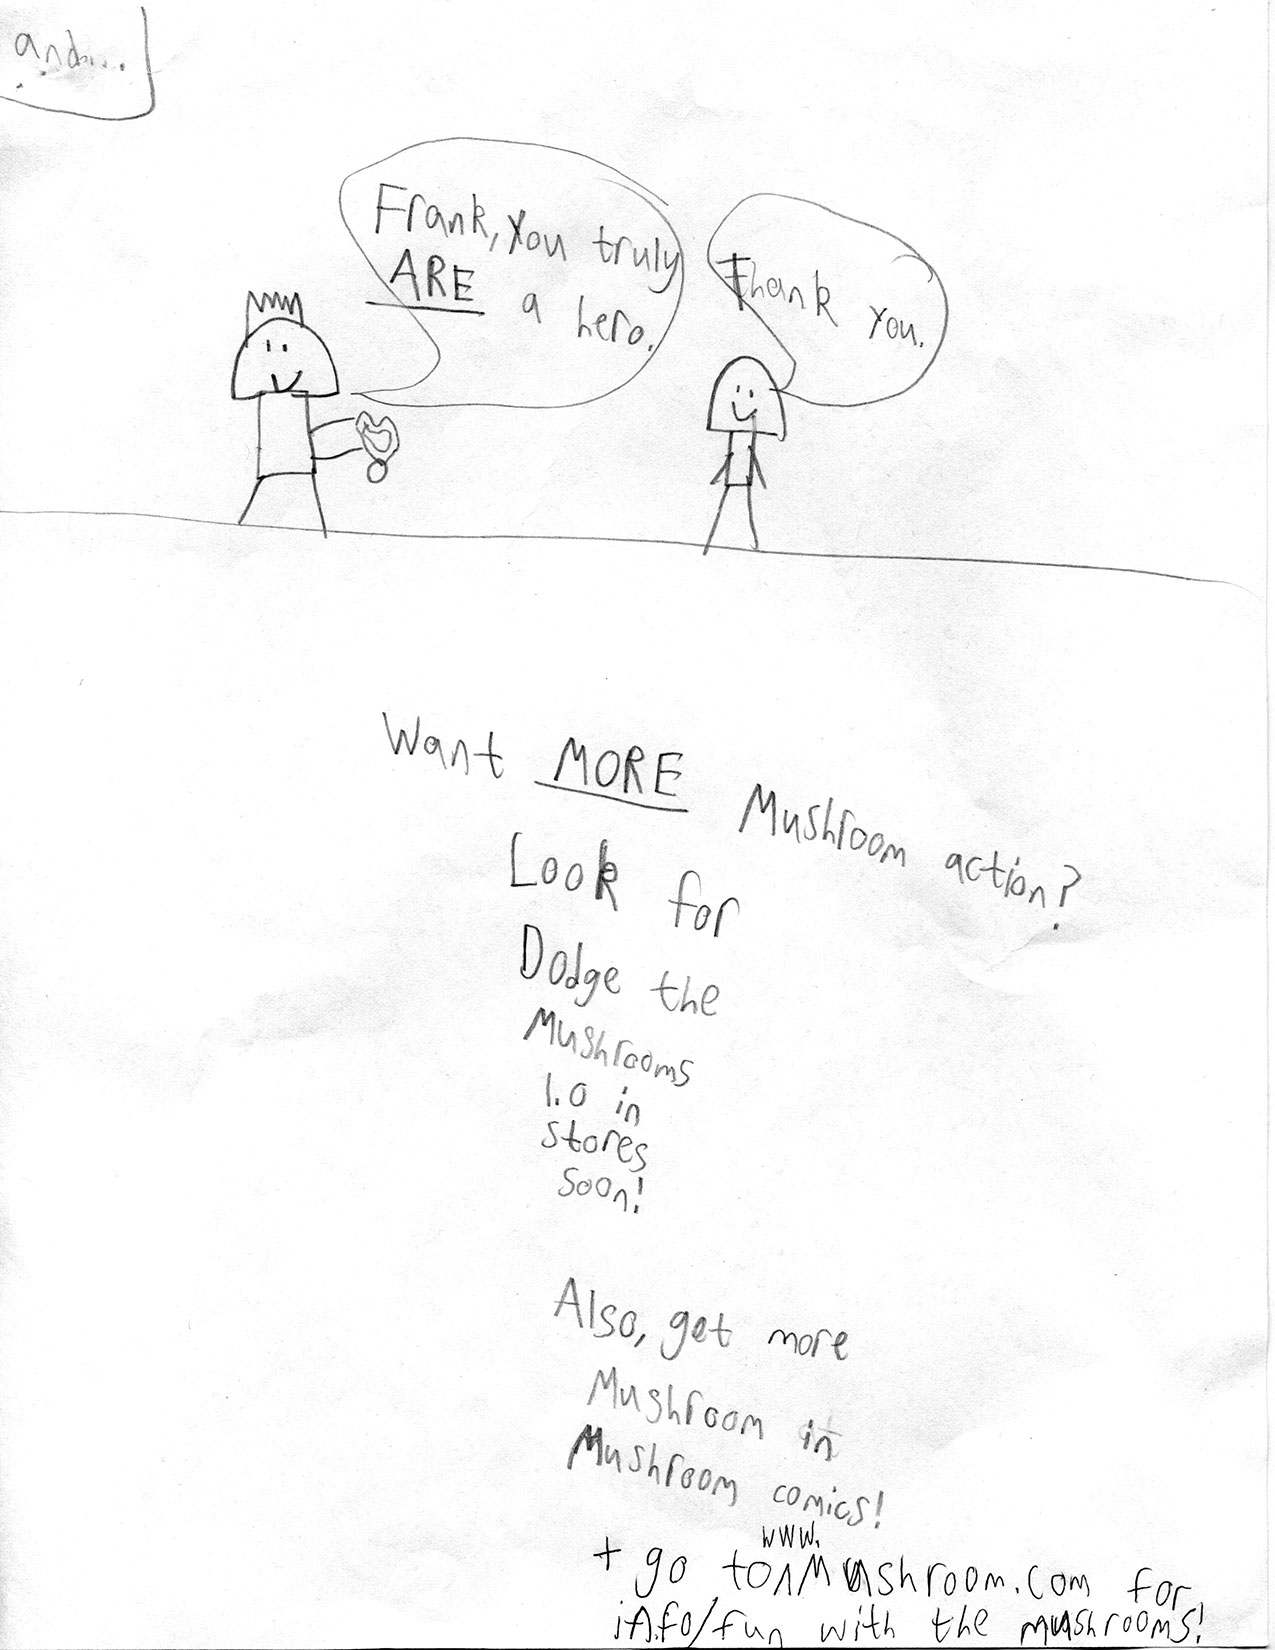 and...
Frank, You truly
ARE a hero.
Thank
You.
Want MORE Mushroom action?
Look for
Dodge the
Mushrooms
1.0 in
stores
soon!
Also, get more
Mushroom in
Mushroom comics!
+ go to www.Mushroom.com for
info/fun with the mushrooms!